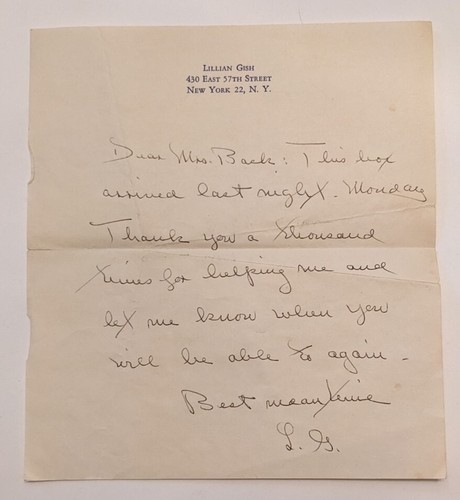 Lillian Gish
430 East 57th Street
New York 22, N. Y.
Dear Mrs. Back: This box
arrived last night. Monday
Thank you a thousand
times for helping me and
let me know when you
will be able to again -
Best meantime
L. G.